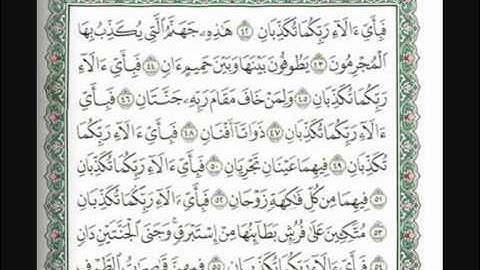 فَبِأَيِّ ءَالَآءِ رَبِّكُمَا تُكَذِّبَانِ ٤٢ هَٰذِهِۦ جَهَنَّمُ ٱلَّتِى يُكَذِّبُ بِهَا
ٱلْمُجْرِمُونَ ٤٣ يَطُوفُونَ بَيْنَهَا وَبَيْنَ حَمِيمٍ ءَانٍ ٤٤ فَبِأَيِّ ءَالَآءِ
رَبِّكُمَا تُكَذِّبَانِ ٤٥ وَلِمَنْ خَافَ مَقَامَ رَبِّهِۦ جَنَّتَانِ ٤٦ فَبِأَيِّ
ءَالَآءِ رَبِّكُمَا تُكَذِّبَانِ ٤٧ ذَوَاتَآ أَفْنَانٍ ٤٨ فَبِأَيِّ ءَالَآءِ رَبِّكُمَا
تُكَذِّبَانِ ٤٩ فِيهِمَا عَيْنَانِ تَجْرِيَانِ ٥٠ فَبِأَيِّ ءَالَآءِ رَبِّكُمَا تُكَذِّبَانِ
٥١ فِيهِمَا مِن كُلِّ فَٰكِهَةٍ زَوْجَانِ ٥٢ فَبِأَيِّ ءَالَآءِ رَبِّكُمَا تُكَذِّبَانِ
٥٣ مُتَّكِـِٔينَ عَلَىٰ فُرُشٍۭ بَطَآئِنُهَا مِنْ إِسْتَبْرَقٍ ۚ وَجَنَى ٱلْجَنَّتَيْنِ دَانٍ
٥٤ فَبِأَيِّ ءَالَآءِ رَبِّكُمَا تُكَذِّبَانِ ٥٥ فِيهِنَّ قَٰصِرَٰتُ ٱلطَّرْفِ